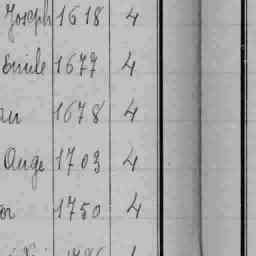 Joseph 1618 4
Emile 1677 4
an 1678 4
Ange 1703 4
or 1750 4